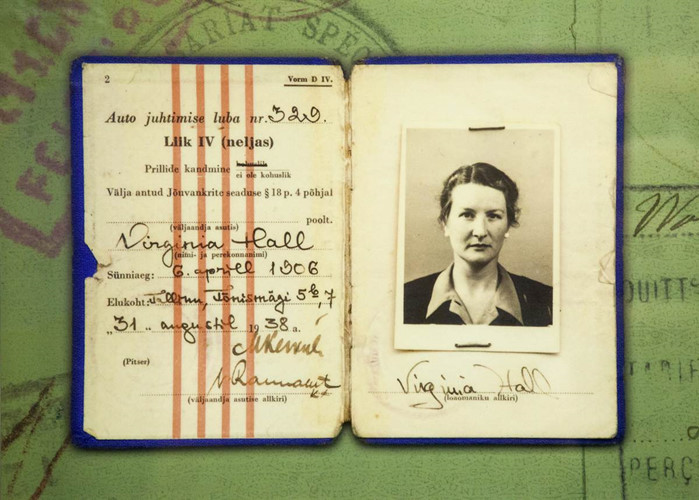 ARIAT SPEC
2
Vorm D IV.
Auto juhtimise luba nr. 329.
Liik IV (neljas)
Prillide kandmine kohuslik
ei ole kohuslik
Välja antud Jõuvankrite seaduse § 18 p. 4 põhjal
poolt.
(väljaandja asutis)
Virginia Hall
(nimi- ja perekonnanimi)
Sünniaeg: 6. aprill 1906
Elukoht: Tallinn, Tõnismägi 5b, 7
„31„ augustil 1938 a.
(Pitser)
(väljaandja asutise allkiri)
Virginia Hall
(loaomaniku allkiri)
QUITT
TARIF
PERÇ